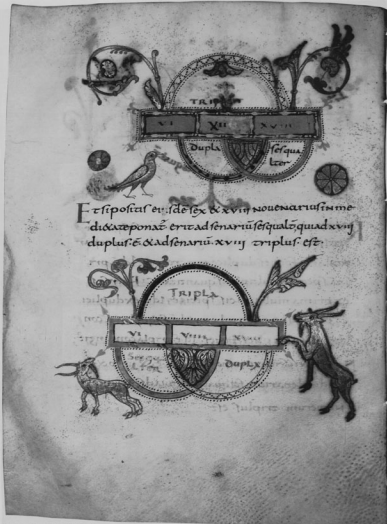 TRIPLA
VI XII XVIII
dupla sesqua
lter
Et si positis eisdē sex & XVIII novenarius in me
dietate ponat̄ erit ad senariū sesqualt̄, quia ad XVIII
duplus ē & ad senariū XVIII triplus est
TRIPLA
VI VIIII XVIII
SESQUA
LTER DUPLA